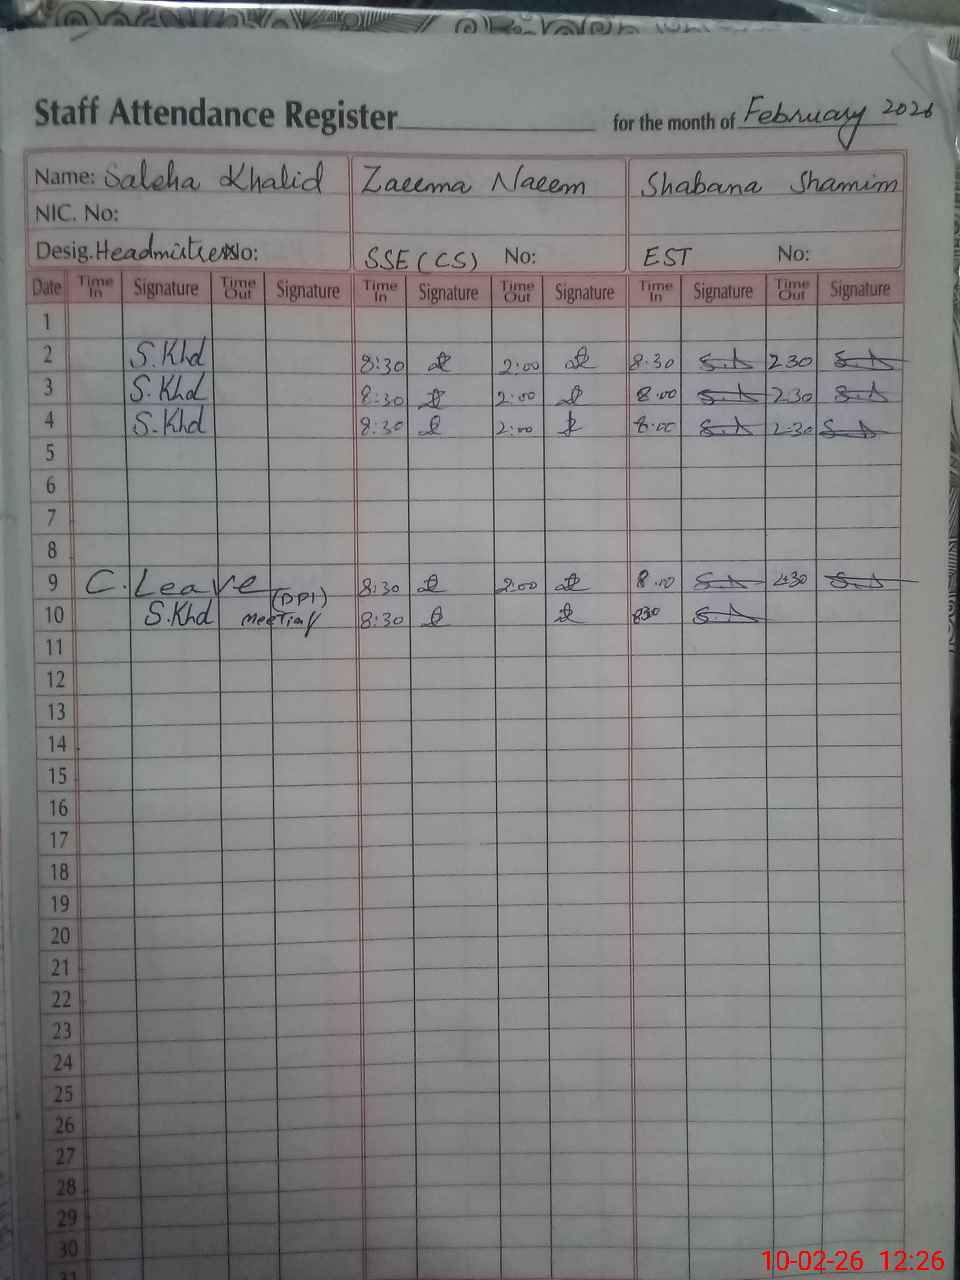 Staff Attendance Register for the month of February 2026
Name: Saleha Khalid Zaeema Naeem Shabana Shamim
NIC. No:
Desig. Headmistress No: SSE (CS) No: EST No:
Date Time In Signature Time Out Signature Time In Signature Time Out Signature Time In Signature Time Out Signature
1
2 S.Khd 8:30 2:00 8:30 S.A 2 30 S.A
3 S.Khd 8:30 2:00 8:00 S.A 2:30 S.A
4 S.Khd 8:30 2:00 8:00 S.A 2:30 S.A
5
6
7
8
9 C. Leave 8:30 2:00 8:00 S.A 2:30 S.A
10 S.Khd (DPI) meeting 8:30 830 S.A
11
12
13
14
15
16
17
18
19
20
21
22
23
24
25
26
27
28
29
30
31
10-02-26 12:26